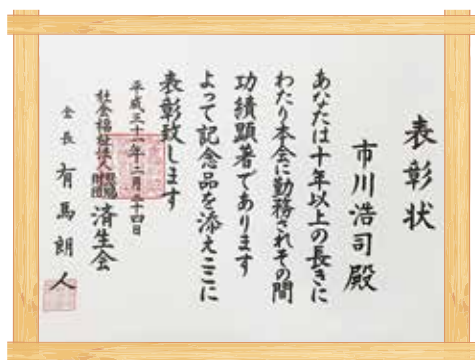 表彰状
市川浩司殿
あなたは十年以上の長きに
わたり本会に勤務されその間
功績顕著であります
よって記念品を添えここに
表彰致します
平成三十一年二月二十四日
社会福祉法人恩賜財団済生会
会長有馬朗人